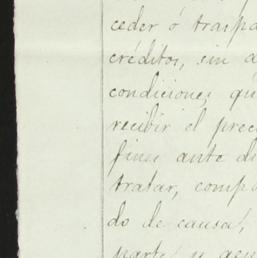 ceder ó traspa
créditos, sin
condiciones qu
recibir el prec
fines ante
tratar, comp
do de causa,
parte y